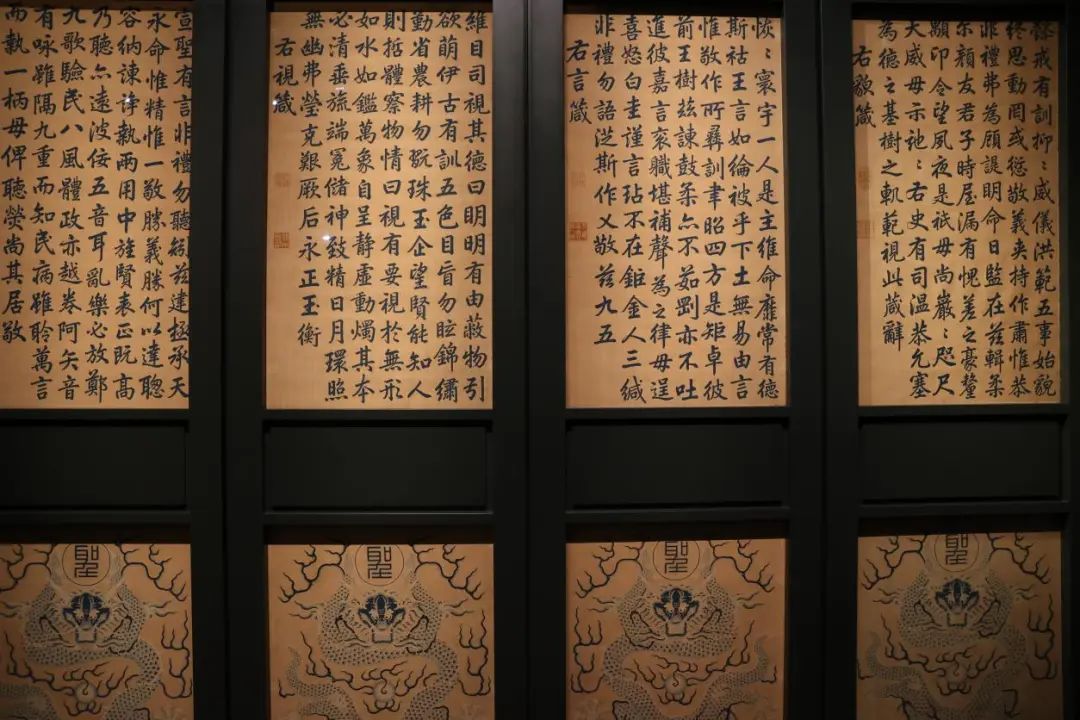 戒有訓抑〻威儀洪範五事始貌
終思動罔或愆敬義夾持作肅惟恭
非禮弗為顧諟明命日監在茲輯柔
尔顏友君子時屋漏有愧差之豪釐
顒卬令望夙夜是祇毋尚嚴〻咫尺
天威毋示〻右史有司温恭允塞
為德之基樹之軌範視此箴辭
右貌箴
恢〻寰宇一人是主維命靡常有德
斯祜王言如綸被乎下土無易由言
惟敬作所彞訓聿昭四方是矩卓彼
前王樹茲諫鼓柔亦不茹剛亦不吐
進彼嘉言衮職堪補聲為之律毋逞
喜怒白圭謹言玷不在鉅金人三緘
非禮勿語斯作乂敬茲九五
右言箴
維目司視其德曰明明有由蔽物引
欲萌伊古有訓五色目盲勿眩錦繡
勤省農耕勿翫珠玉企望賢能知人
則哲體察物情曰視有要視於無形
如水如鑑萬象自呈静虛動燭其本
必清垂旒端冕儲神致精日月環照
無幽弗瑩克艱厥后永正玉衡
右視箴
宣聖有言非禮勿聽矧茲建極承天
永命惟精惟一敬勝義勝何以達聰
容納諫諍執兩用中旌賢表正既高
乃聽亦遠波佞五音耳亂樂必放鄭
九歌驗民八風體政亦越卷阿矢音
有咏雖隔九重而知民病雖聆萬言
而執一柄毋俾聽熒尚其居敬
聖
聖
聖
聖